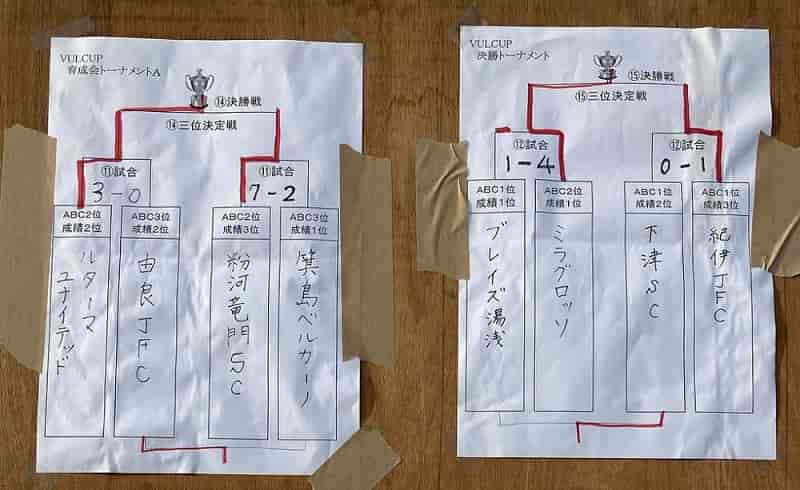 VULCUP
育成会トーナメントA
⑭決勝戦
⑭三位決定戦
⑪試合
3-0
⑪試合
7-2
ABC2位
成績2位
ルターマ
ユナイテッド
ABC3位
成績2位
由良JFC
ABC2位
成績3位
粉河竜門SC
ABC3位
成績1位
箕島ベルカーノ
VULCUP
決勝トーナメント
⑮決勝戦
⑮三位決定戦
⑫試合
1-4
⑫試合
0-1
ABC1位
成績1位
ブレイズ湯浅
ABC2位
成績1位
ミラグロッソ
ABC1位
成績2位
下津SC
ABC1位
成績3位
紀伊JFC